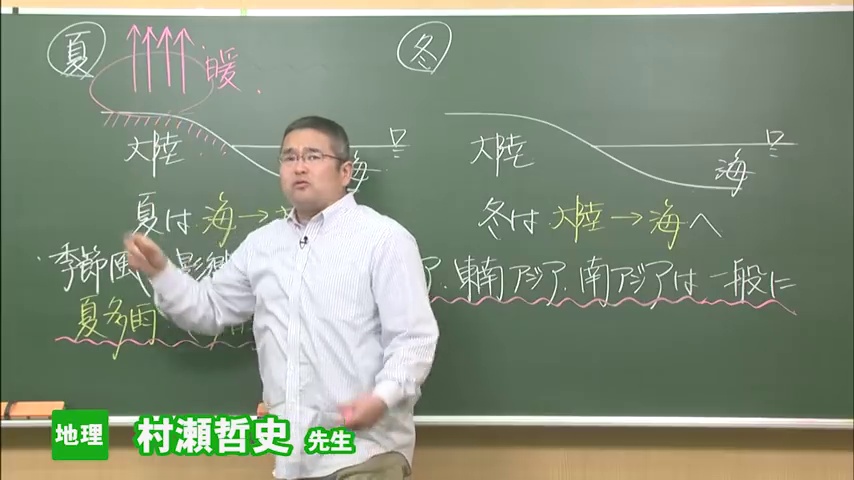 夏
冬
暖
大陸
海
大陸
海
夏は 海→
冬は 大陸→海へ
季節風の影
ア、東南アジア、南アジアは一般に
夏多雨
地理 村瀬哲史 先生